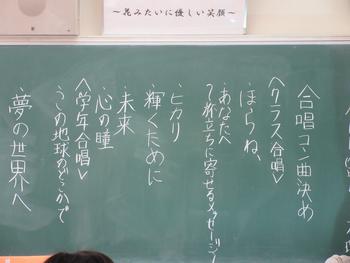 ～花みたいに優しい笑顔～
合唱コン曲決め
＜クラス合唱＞
・ほらね、
・あなたへ
～旅立ちに寄せるメッセージ～
・ヒカリ
輝くために
・未来
・心の瞳
＜学年合唱＞
・この地球のどこかで
・夢の世界へ